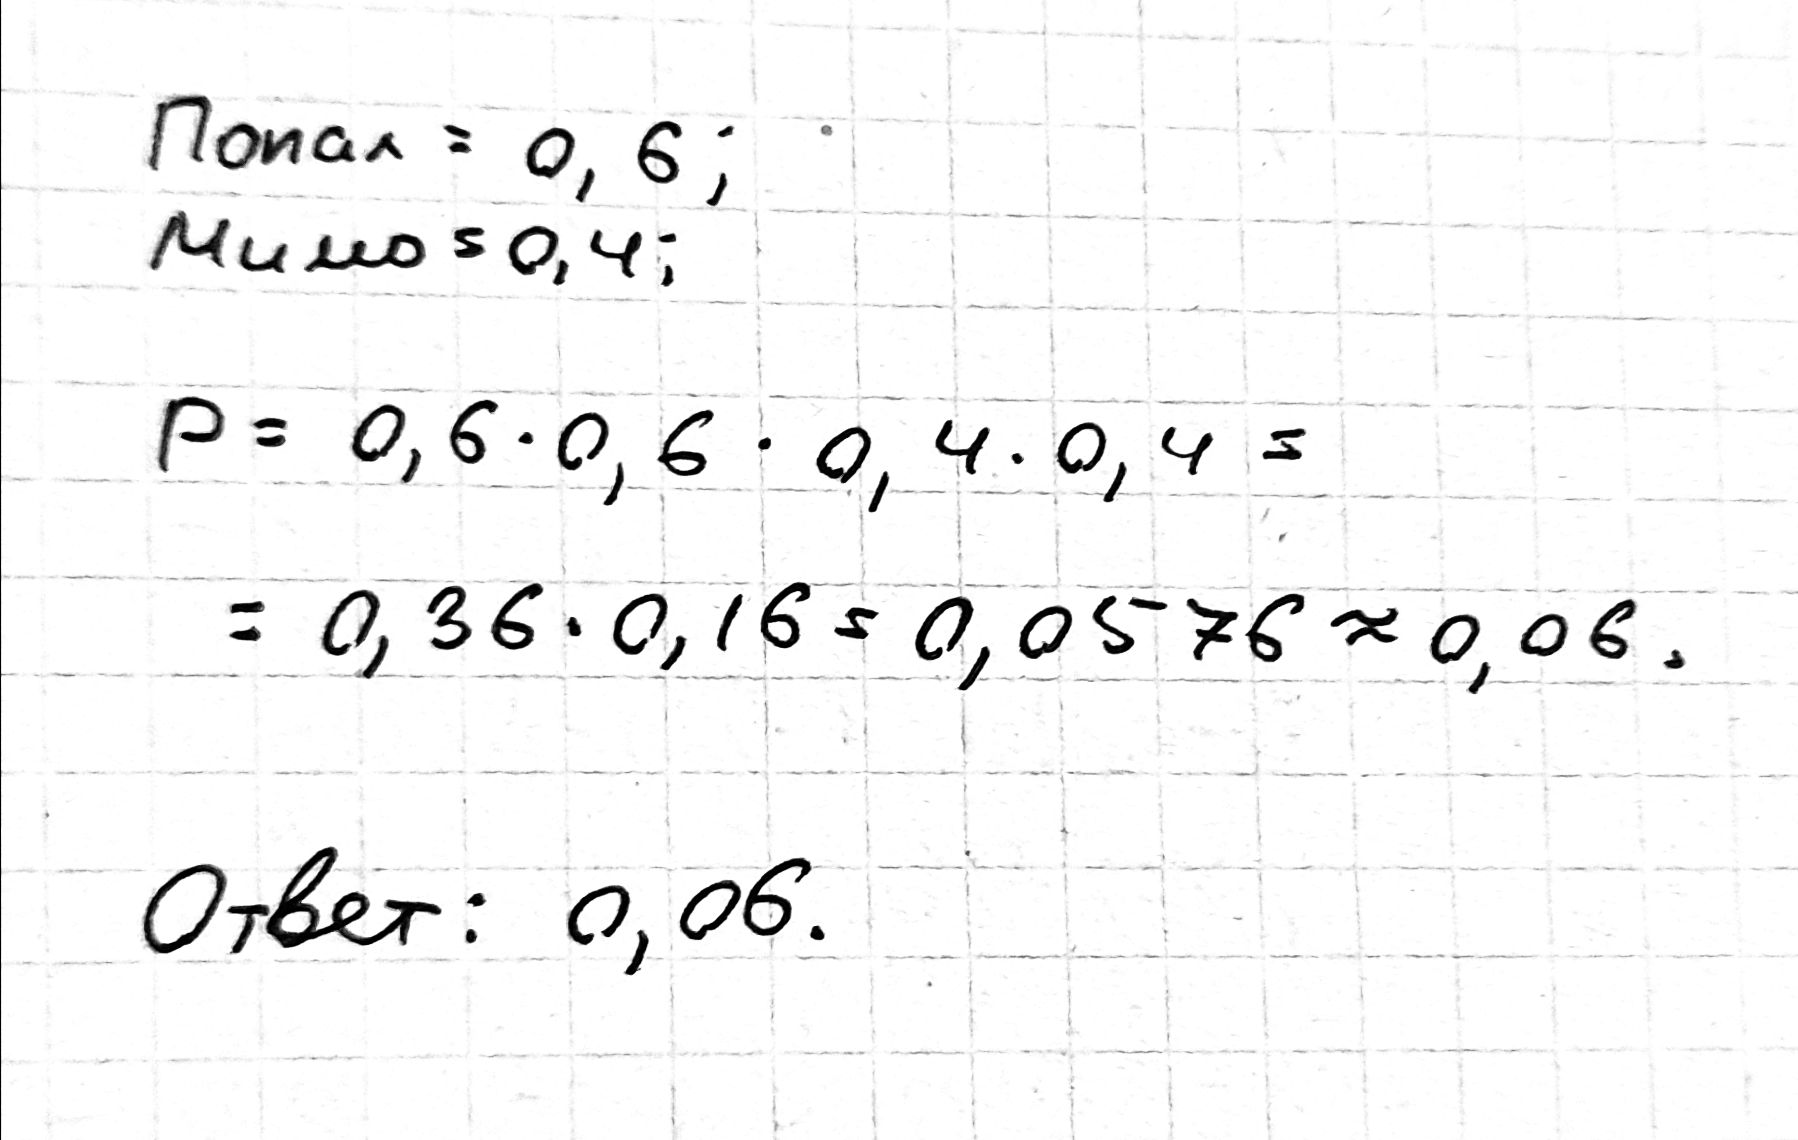 Попал = 0,6;
Мимо = 0,4;
P = 0,6 · 0,6 · 0,4 · 0,4 =
= 0,36 · 0,16 = 0,0576 ≈ 0,06.
Ответ: 0,06.